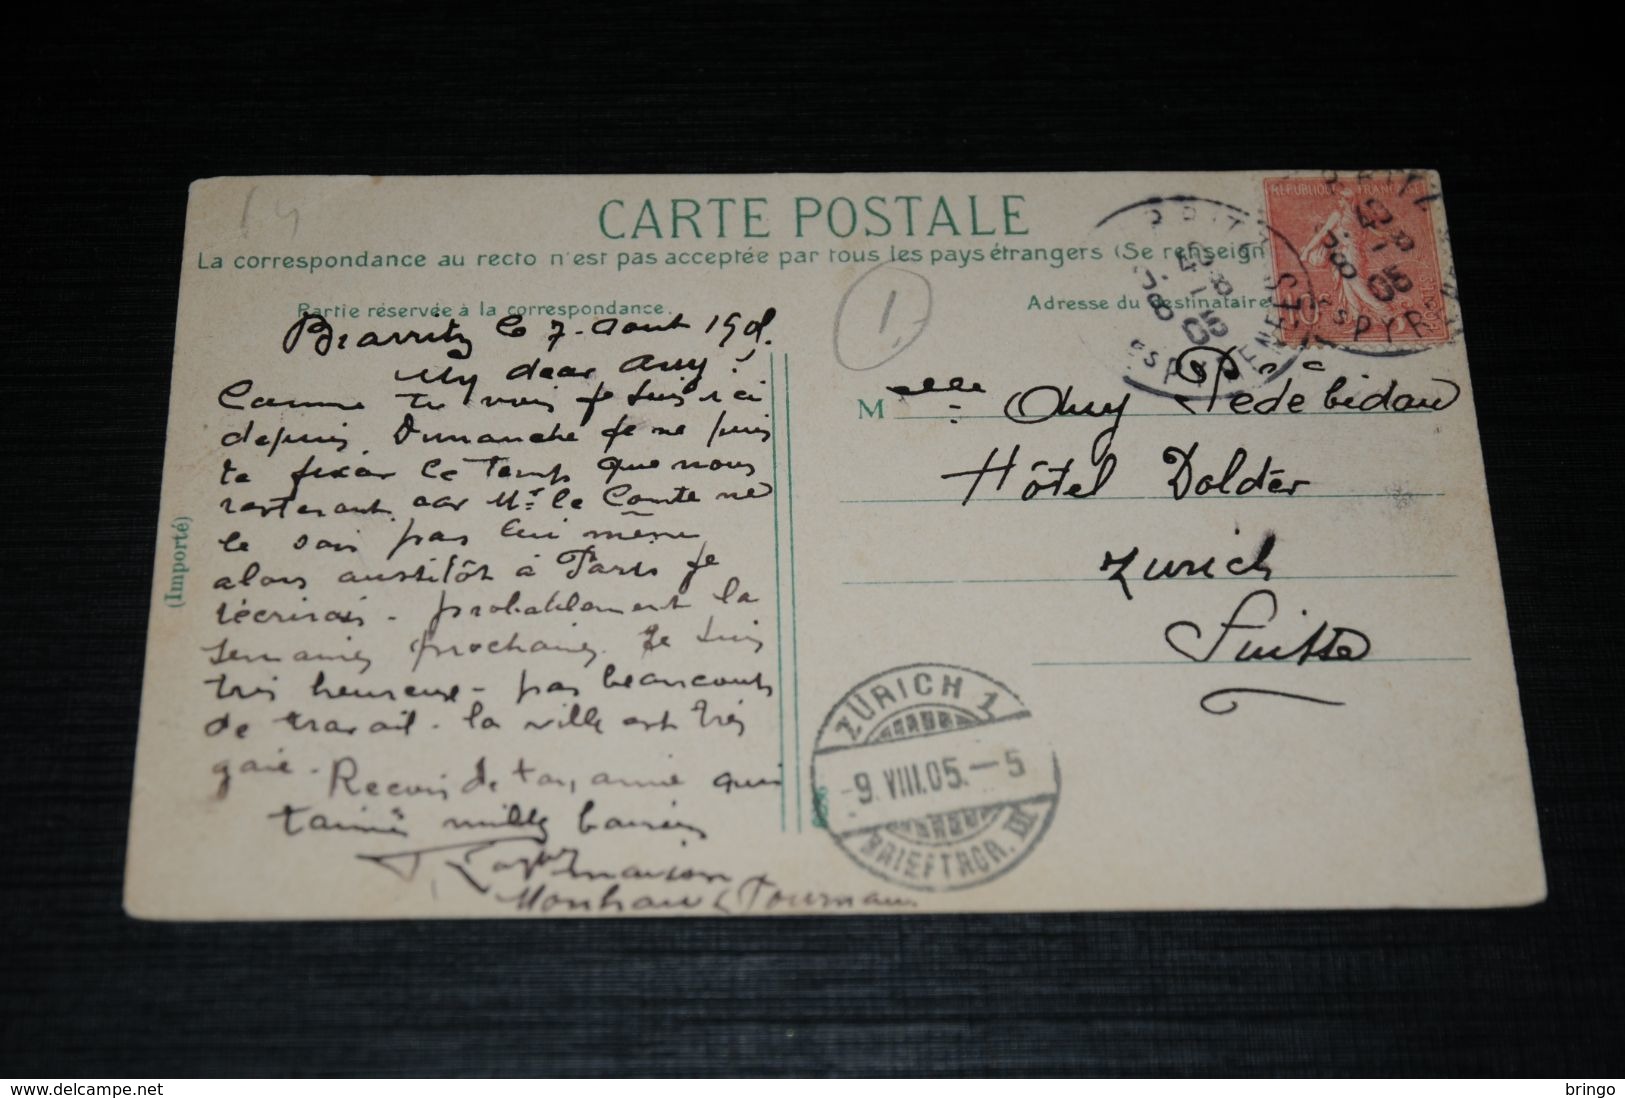 64
CARTE POSTALE
La correspondance au recto n'est pas acceptée par tous les pays étrangers (Se renseign
Partie réservée à la correspondance.
Adresse du destinataire
REPUBLIQUE FRANÇAISE
10
1
(Importé)
Biarritz le 7 Aout 190
My dear Amy!
Comme tu vois je suis ici
depuis Dimanche je ne puis
te fixer le temps que nous
resterons car Mr le Comte ne
le sais pas lui même
alors aussitôt à Paris je
t'écrirais - probablement la
semaine prochaine. Je suis
très heureuse - pas beaucoup
de travail - la ville est très
gaie - Recois de ton amie qui
t'aime mille baisers
Melle Amy
Hôtel Dolder
Zurich
Suisse
ZÜRICH 1
-9.VIII.05.-5
BRIEFTRGR. III
bringo